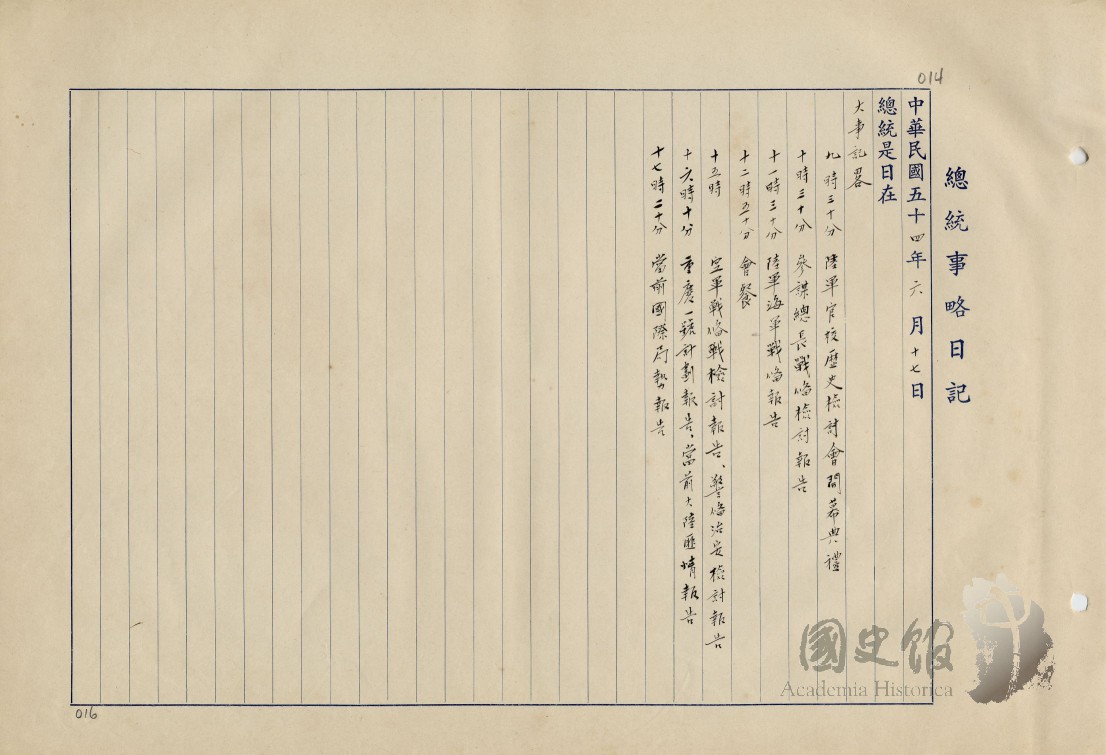 014
總統事略日記
中華民國五十四年六月十七日
總統是日在
大事記畧
九時三十分 陸軍官校歷史檢討會開幕典禮
十時三十分 參謀總長戰備檢討報告
十一時三十分 陸軍海軍戰備報告
十二時五十分 會餐
十五時 空軍戰備戰檢討報告、警備治安檢討報告
十六時十分 重慶一號計劃報告、當前大陸匪情報告
十七時二十分 當前國際局勢報告
016
國史館
Academia Historica